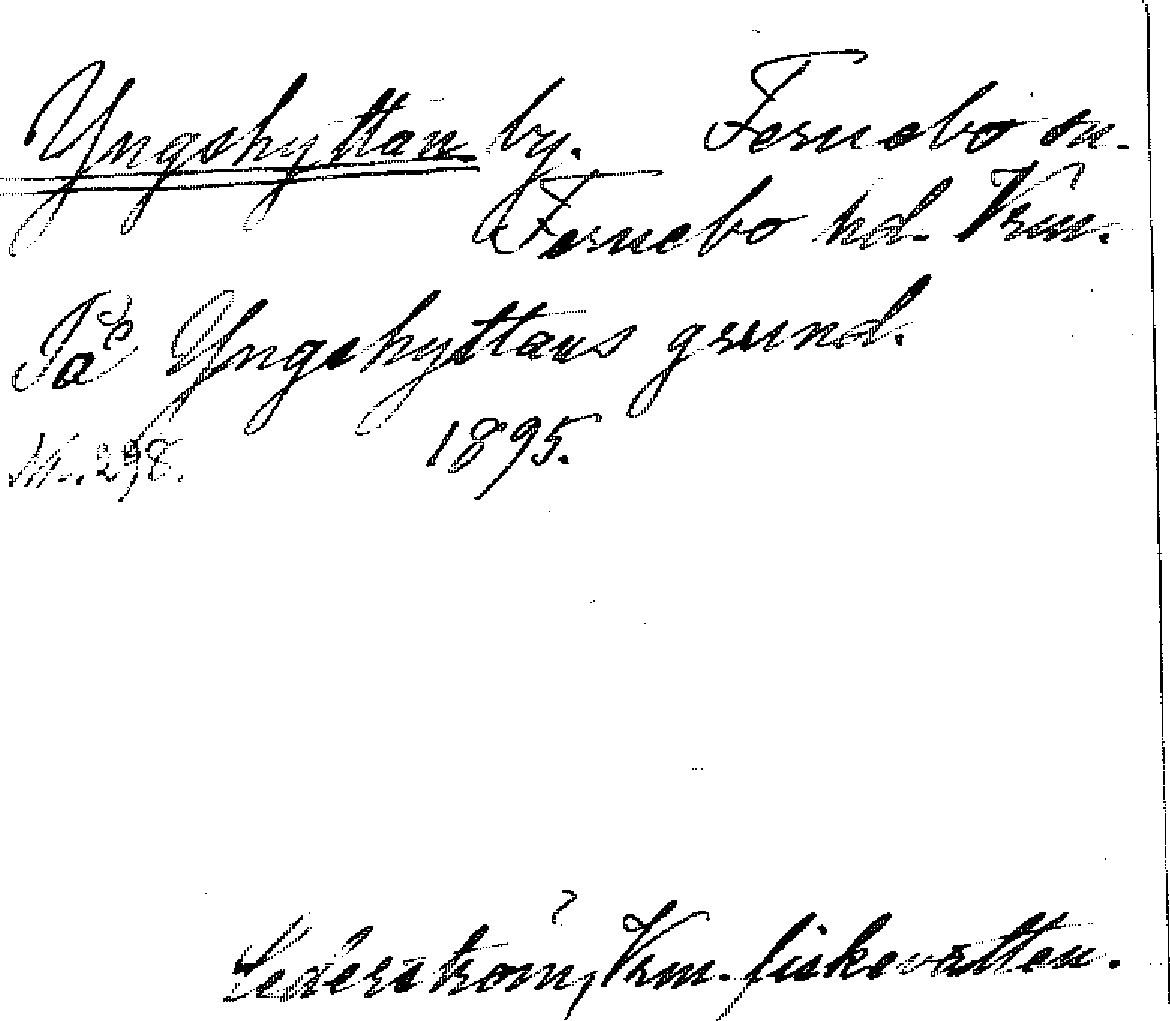 Yngshyttan by. Fernebo sn.
Fernebo hd. Vrm.
På Yngshyttans grund.
s. 298. 1895.
Cederström, Vrm. fiskevatten.